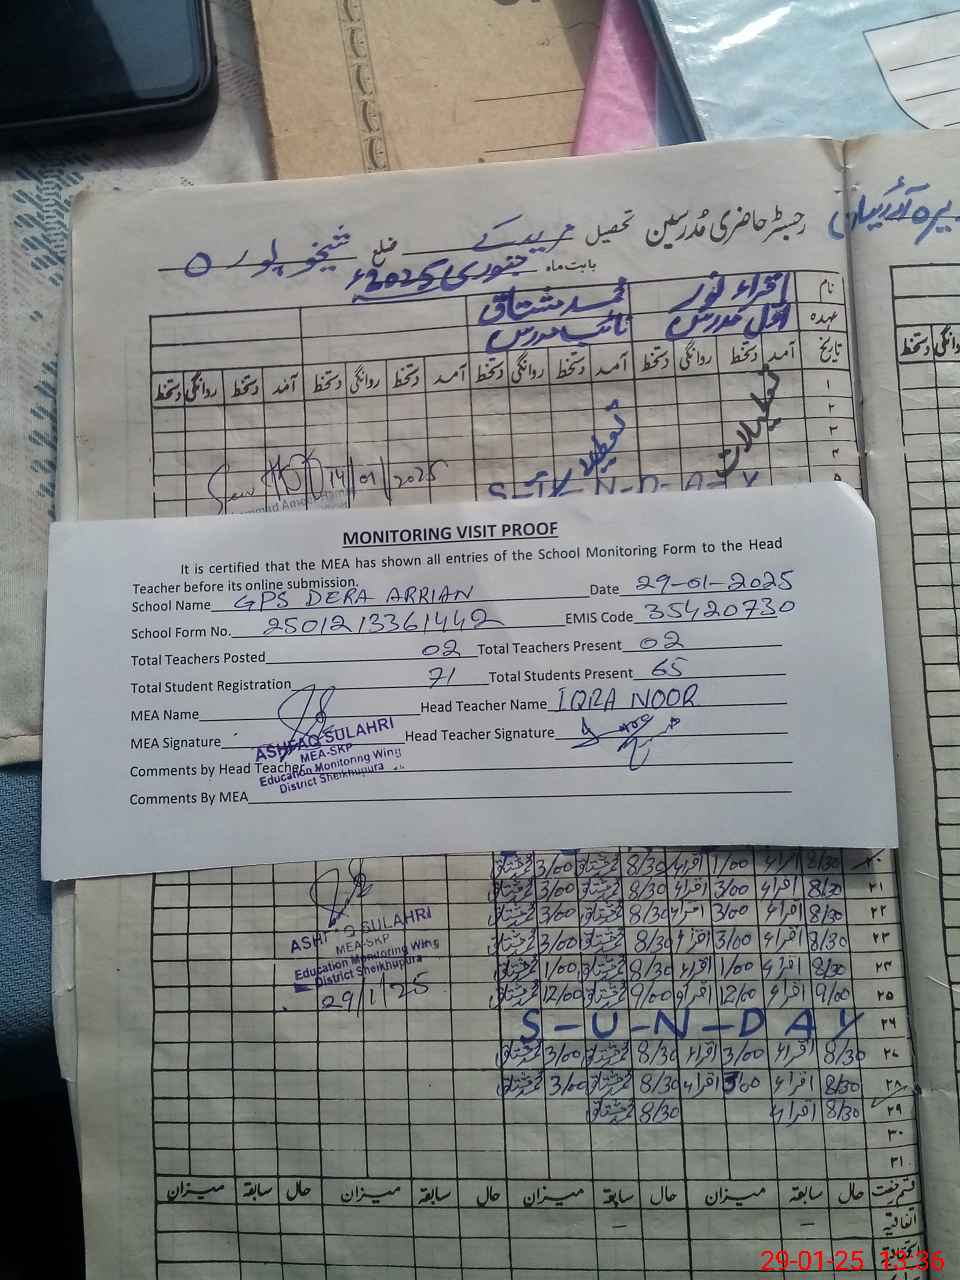 رجسٹر حاضری مُدرسین تحصیل مریدکے ضلع شیخوپورہ
بابت ماہ جنوری 2025ء
نام اقراء نور محمد مشتاق
عہدہ اول مدرس نائب مدرس
تاریخ آمد دستخط روانگی دستخط آمد دستخط روانگی دستخط آمد دستخط روانگی دستخط آمد دستخط روانگی دستخط
روانگی دستخط
۱
۲
تعطیلات
14/01/2025
S-U-N-D-A-Y
MONITORING VISIT PROOF
It is certified that the MEA has shown all entries of the School Monitoring Form to the Head
Teacher before its online submission.
School Name GPS DERA ARRIAN Date 29-01-2025
School Form No. 2501213361442 EMIS Code 35420730
Total Teachers Posted 02 Total Teachers Present 02
Total Student Registration 71 Total Students Present 65
MEA Name Head Teacher Name IQRA NOOR
MEA Signature Head Teacher Signature
ASHFAQ SULAHRI
MEA-SKP
Education Monitoring Wing
District Sheikhupura
Comments by Head Teacher
Comments By MEA
۲۰ 8/30 اقراء 1/00 اقراء 8/30 مشتاق 3/00 مشتاق
۲۱ 8/30 اقراء 3/00 اقراء 8/30 مشتاق 3/00 مشتاق
۲۲ 8/30 اقراء 3/00 اقراء 8/30 مشتاق 3/00 مشتاق
۲۳ 8/30 اقراء 3/00 اقراء 8/30 مشتاق 3/00 مشتاق
۲۴ 8/30 اقراء 1/00 اقراء 8/30 مشتاق 1/00 مشتاق
۲۵ 9/00 اقراء 12/00 اقراء 9/00 مشتاق 12/00 مشتاق
۲۶ S-U-N-D-A-Y
۲۷ 8/30 اقراء 3/00 اقراء 8/30 مشتاق 3/00 مشتاق
۲۸ 8/30 اقراء 3/00 اقراء 8/30 مشتاق 3/00 مشتاق
۲۹ 8/30 اقراء 8/30 مشتاق
۳۰
۳۱
ASHFAQ SULAHRI
MEA-SKP
Education Monitoring Wing
District Sheikhupura
29/1/25
قسم رخصت حال سابقہ میزان حال سابقہ میزان حال سابقہ میزان حال سابقہ میزان
اتفاقیہ
29-01-25 13:36